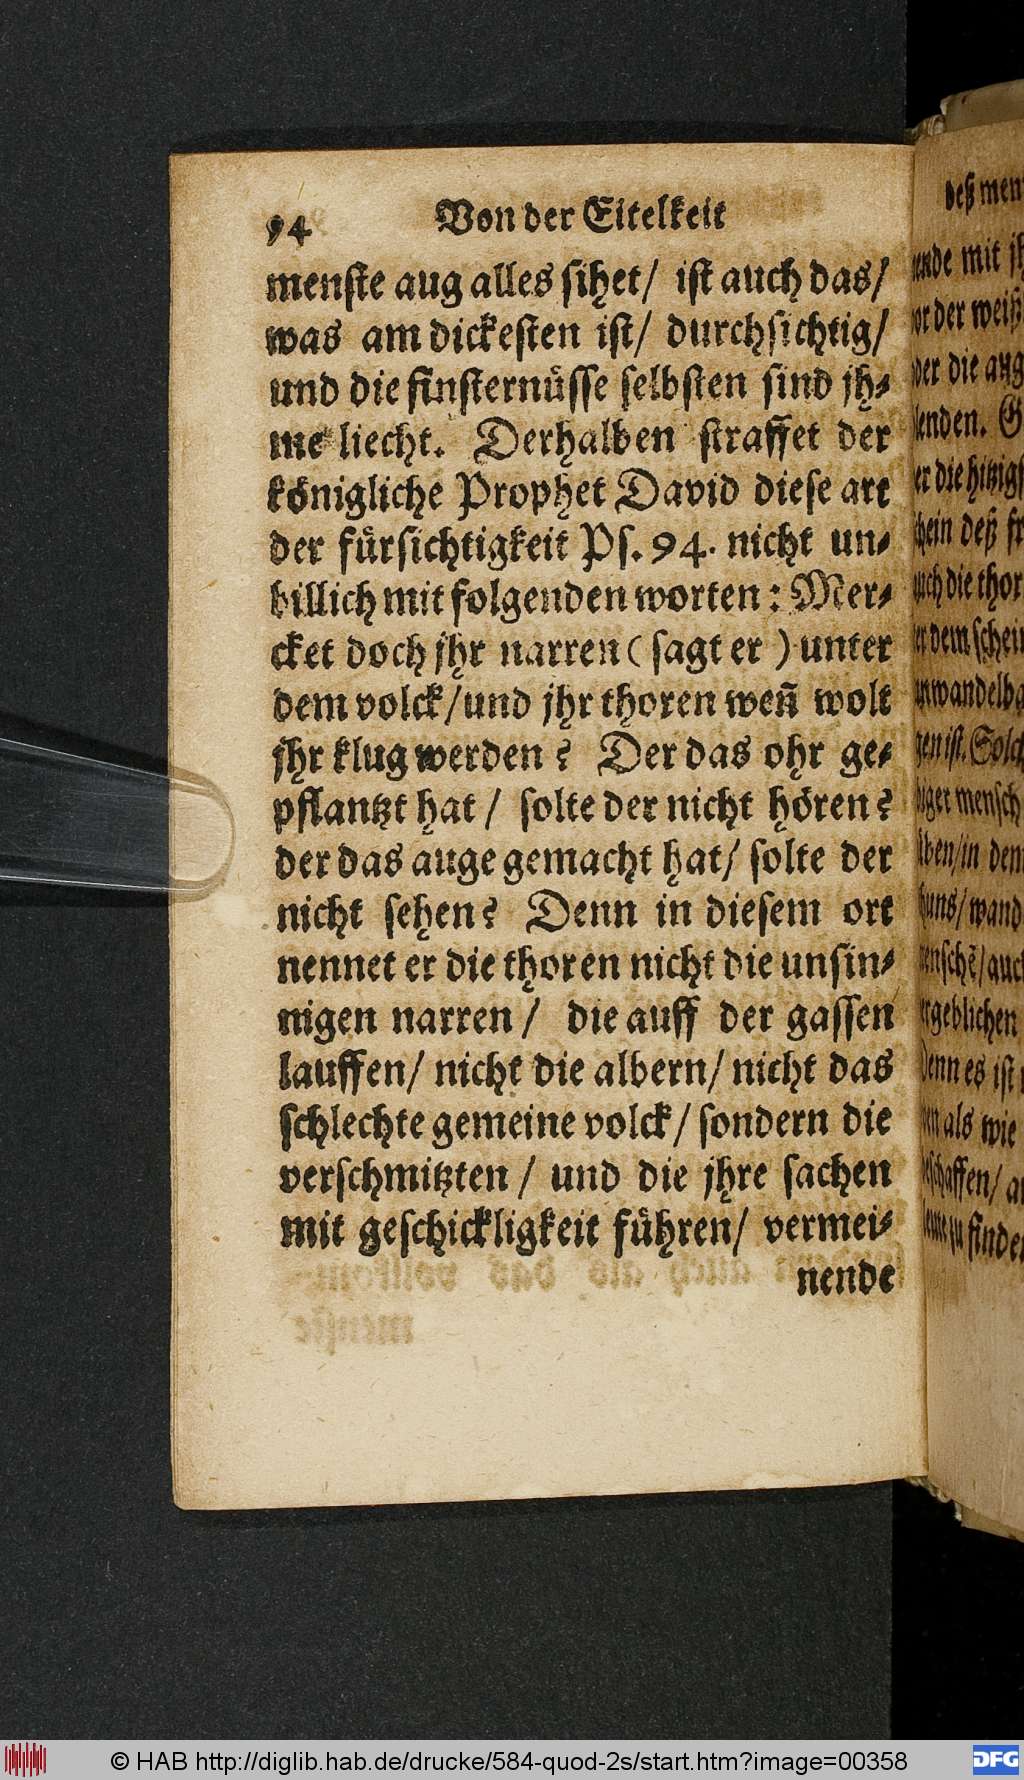 94 Von der Eitelkeit
menste aug alles sihet/ ist auch das/
was am dickesten ist/ durchsichtig/
und die finsternüsse selbsten sind jh⸗
me liecht. Derhalben straffet der
königliche Prophet David diese art
der fürsichtigkeit Ps. 94. nicht un⸗
billich mit folgenden worten: Mer⸗
cket doch jhr narren (sagt er) unter
dem volck/ und jhr thoren weñ wolt
jhr klug werden? Der das ohr ge⸗
pflantzt hat/ solte der nicht hören?
der das auge gemacht hat/ solte der
nicht sehen? Denn in diesem ort
nennet er die thoren nicht die unsin⸗
nigen narren/ die auff der gassen
lauffen/ nicht die albern/ nicht das
schlechte gemeine volck/ sondern die
verschmitzten/ und die jhre sachen
mit geschickligkeit führen/ vermei⸗
nende
deß
mit
der weiß
die aug
die hitzigs
deß
die thor
dem schein
ist. Solch
mensch
in dem
wand
auch
Denn es ist
als wie
zu finden
© HAB http://diglib.hab.de/drucke/584-quod-2s/start.htm?image=00358
DFG